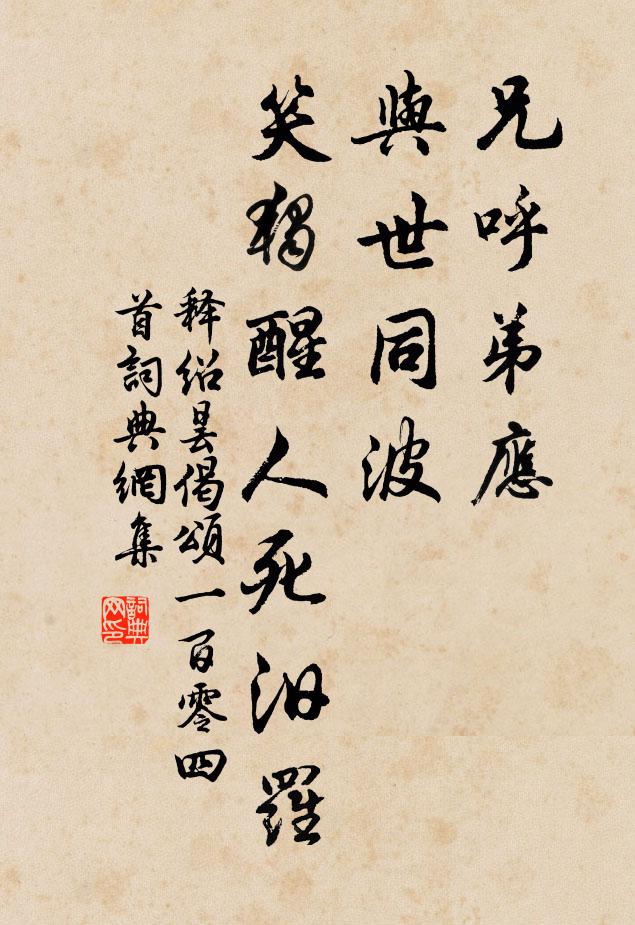 兄呼弟應
與世同波
笑獨醒人死汨羅
释绍昙偈頌一百零四
首詞典網集
詞典
网印